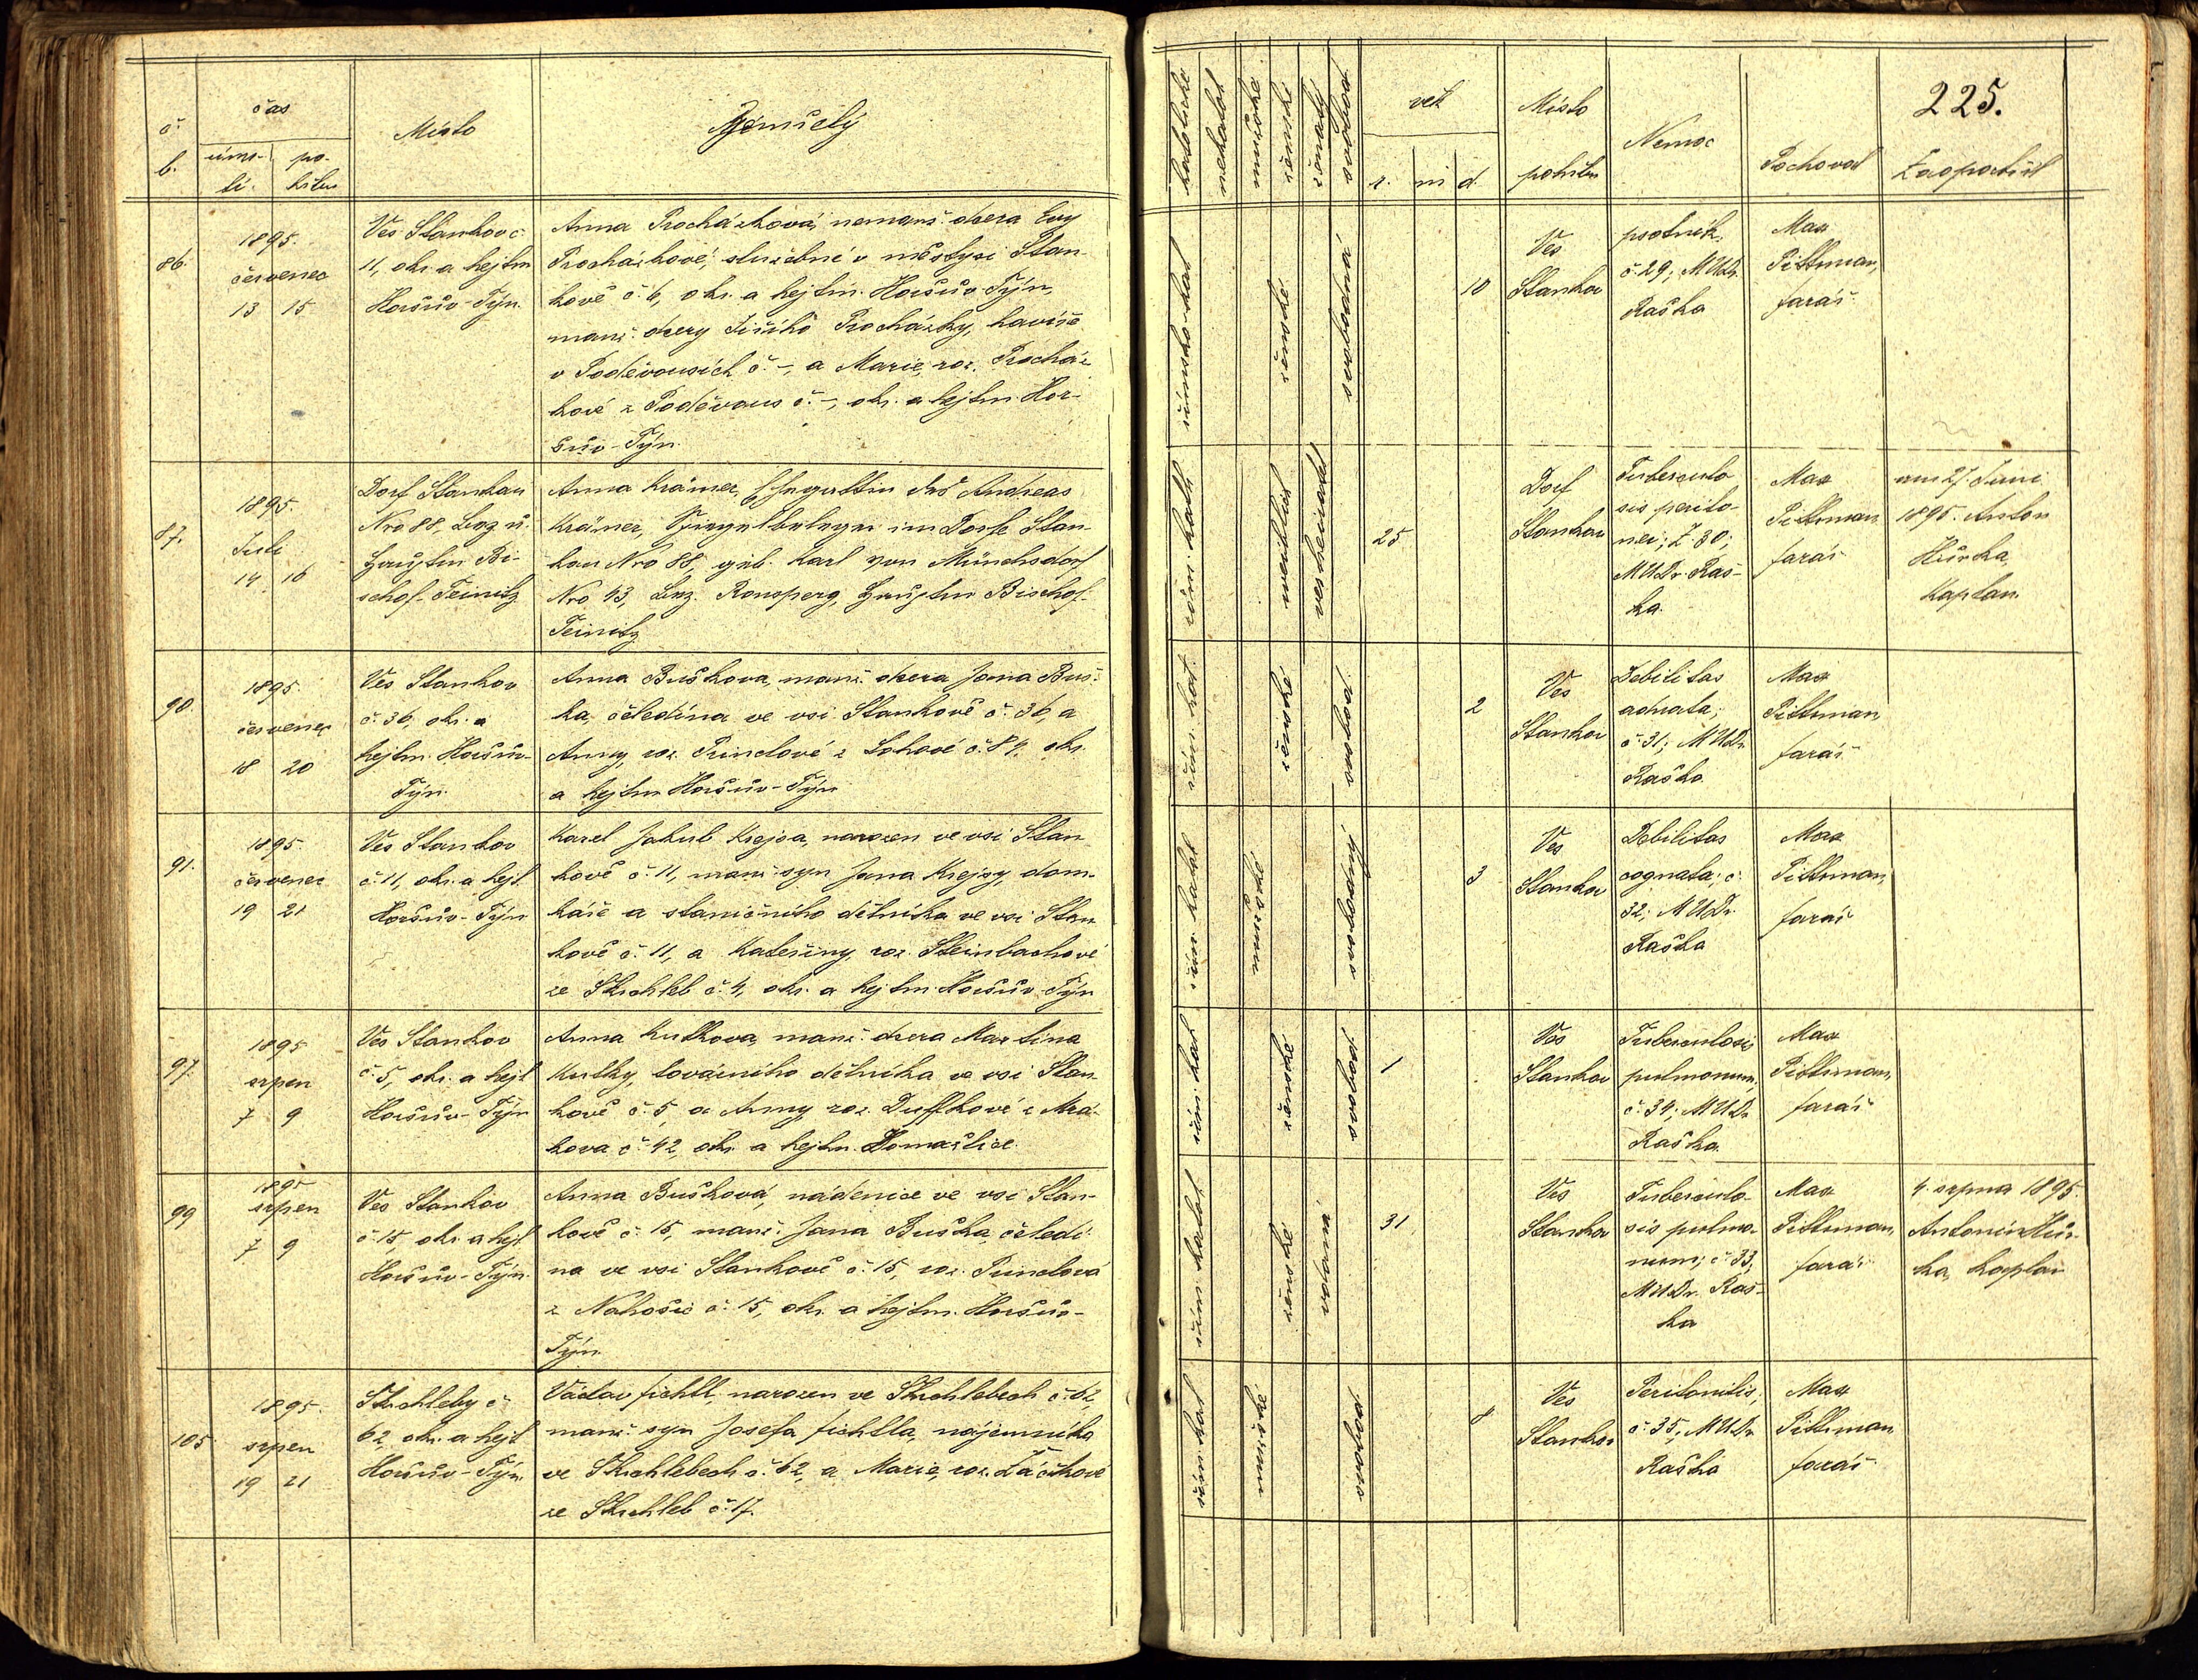 č. b.
čas
úmr-
tí.
po-
hřbu
Místo
Zemřelý
86.
1895.
červenec
13 15
Ves Stankov č.
11, okr. a hejtm
Horšův-Týn.
Anna Procházková, nemanž. dcera Evy
Procházkové, služebné v městysi Stan-
kově č. 6, okr. a hejtm. Horšův-Týn,
manž. dcery Jiřího Procházky, havíře
v Poděvousích č. –, a Marie, roz. Procház
kové z Poděvous č. –, okr. a hejtm. Hor-
šův-Týn.
87.
1895.
Juli
14 16
Dorf Stankau
Nro 88, Bez u.
Hauptm Bi-
schof-Teinitz
Anna Krämer, Ehegattin des Andreas
Krämer, im Dorfe Stan-
kau Nro 88, geb. Karl von Münchsdorf
Nro 43, Bez. Ronsperg, Hauptm Bischof-
Teinitz
90.
1895.
červenec
18 20
Ves Stankov
č. 36, okr. a
hejtm. Horšův-
Týn.
Anna Bušková, manž. dcera Jana Buš-
ka, čeledína ve vsi Stankově č. 36, a
Anny, roz. Prindlové z č. 84, okr.
a hejtm Horšův-Týn
91.
1895.
červenec
19 21
Ves Stankov
č. 11, okr. a hejt
Horšův-Týn
Karel Jakub Krejsa, narozen ve vsi Stan
kově č. 11, manž. syn Jana Krejsy, dom-
káře a staničního dělníka ve vsi Stan
kově č. 11, a Kateřiny, roz. Steinbachové
ze Střchleb č. 4, okr. a hejtm. Horšův-Týn
97.
1895
srpen
7 9
Ves Stankov
č. 5, okr. a hejt
Horšův-Týn
Anna Kutkova, manž. dcera Martina
Kutky, továrního dělníka ve vsi Stan-
kově č. 5, a Anny, roz. Duffkové z Mrá-
kova č. 42, okr. a hejtm. Domažlice.
99
1895
srpen
7 9
Ves Stankov
č. 15, okr. a hejt
Horšův-Týn
Anna Bušková, nádenice ve vsi Stan-
kově č. 15, manž. Jana Buška, čeledí-
na ve vsi Stankově č. 15, roz. Prindlová
z Nahošic č. 15, okr. a hejtm. Horšův-
Týn.
105
1895.
srpen
19 21
Střchleby č
62, okr. a hejt
Horšův-Týn
Václav Fichtl, narozen ve Střchlebech č. 62,
manž. syn Josefa Fichtla, nájemníka
ve Střchlebech č. 62, a Marie, roz.
ze Střchleb č. 17.
225.
katolické
nekatol
mužské
ženské
ženatý
svobod.
věk
r. m d.
Místo
pohřbu
Nemoc
Pochoval
Zaopatřil
římsko-kat
ženské
svobodná
10
Ves
Stankov
psotník,
č. 29; MUDr.
Raška
Max
Pittrman,
farář
röm. kath
weiblich
verheiratet
25
Dorf
Stankau
Tuberculo
sis perito-
nei; Z 30;
MUDr. Raš-
ka.
Max
Pittrman
farář
am 27. Juni
1895. Anton
Hůrka,
Kaplan.
řím. kat.
ženské
svobod.
2
Ves
Stankov
Debilitas
adnata;
č. 31; MUDr.
Raška
Max
Pittrman
farář
řím. katol
mužské
svobodný
3
Ves
Stankov
Debilitas
cognata; č
32; MUDr.
Raška
Max
Pittrman,
farář
řím. kat
ženské
svobod
1
Ves
Stankov
Tuberculosis
pulmonum,
č. 34; MUDr
Raška.
Max
Pittrman,
farář
řím. katol.
ženské
vdaná
31
Ves
Stankov
Tuberculo-
sis pulmo-
num; č. 33,
MUDr. Raš-
ka
Max
Pittrman,
farář
4. srpna 1895.
Antonín Hůr-
ka, kaplan
řím. kat
mužské
svobod.
8
Ves
Stankov
Peritonitis,
č. 35; MUDr
Raška
Max
Pittrman
farář